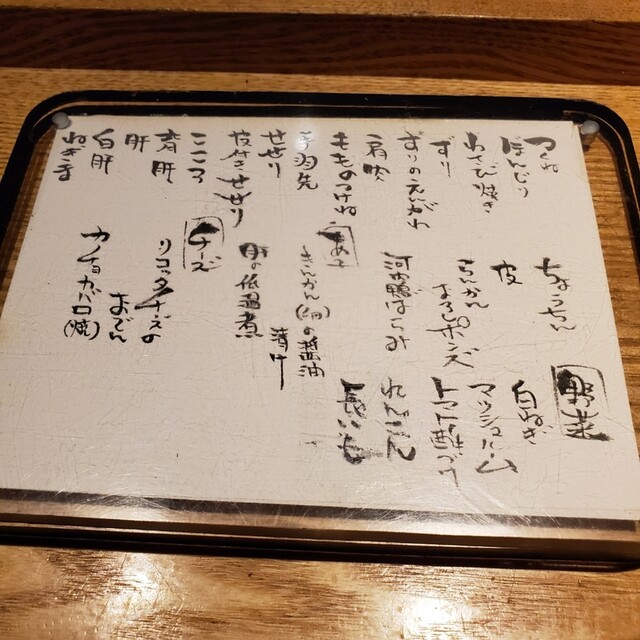 つくね
ぼんじり
わさび焼き
ずり
ずりのえんがわ
肩肉
もものつけね
手羽先
せせり
皮付きせせり
こころ
背肝
肝
白肝
ねぎま
ちょうちん
皮
おろしポンズ
河内鴨はらみ
きんかん(卵)の醤油
漬け
肝の低温煮
チーズ
リコッタチーズの
おでん
カチョカバロ(焼)
野菜
白ねぎ
マッシュルーム
トマト酢づけ
れんこん
長いも